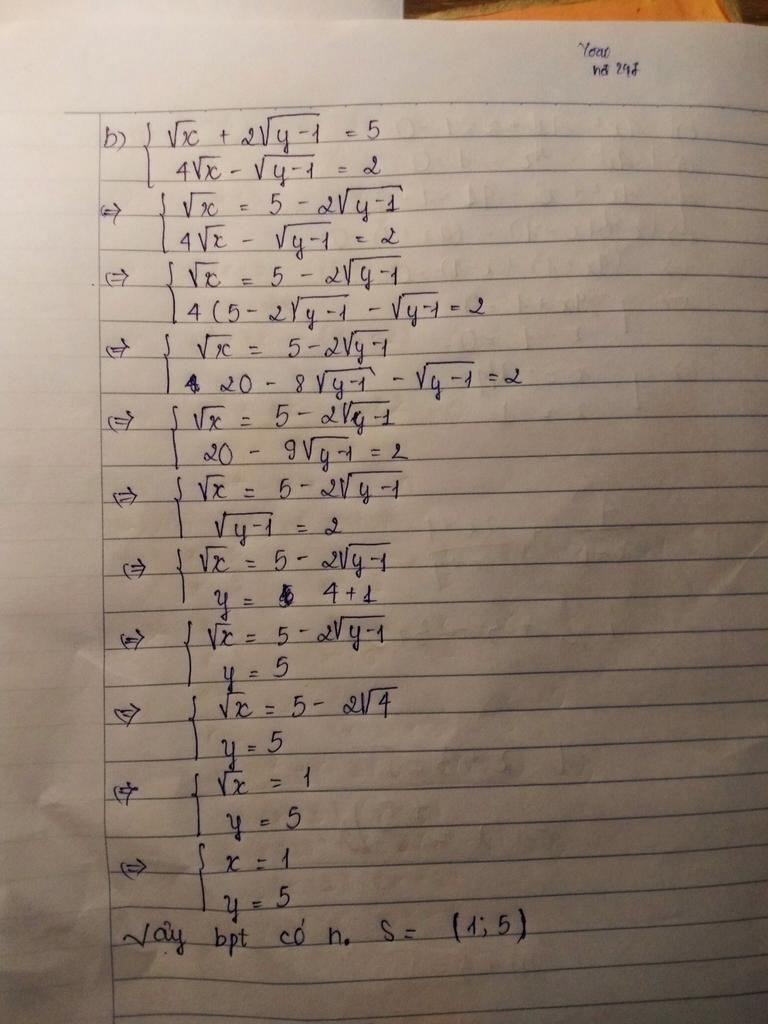 b) { √x + 2√y-1 = 5
4√x - √y-1 = 2
⇔ { √x = 5 - 2√y-1
4√x - √y-1 = 2
⇔ { √x = 5 - 2√y-1
4(5 - 2√y-1 - √y-1 = 2
⇔ { √x = 5 - 2√y-1
20 - 8√y-1 - √y-1 = 2
⇔ { √x = 5 - 2√y-1
20 - 9√y-1 = 2
⇔ { √x = 5 - 2√y-1
√y-1 = 2
⇔ { √x = 5 - 2√y-1
y = 4+1
⇔ { √x = 5 - 2√y-1
y = 5
⇔ { √x = 5 - 2√4
y = 5
⇔ { √x = 1
y = 5
⇔ { x = 1
y = 5
Vậy bpt có n. S = (1; 5)